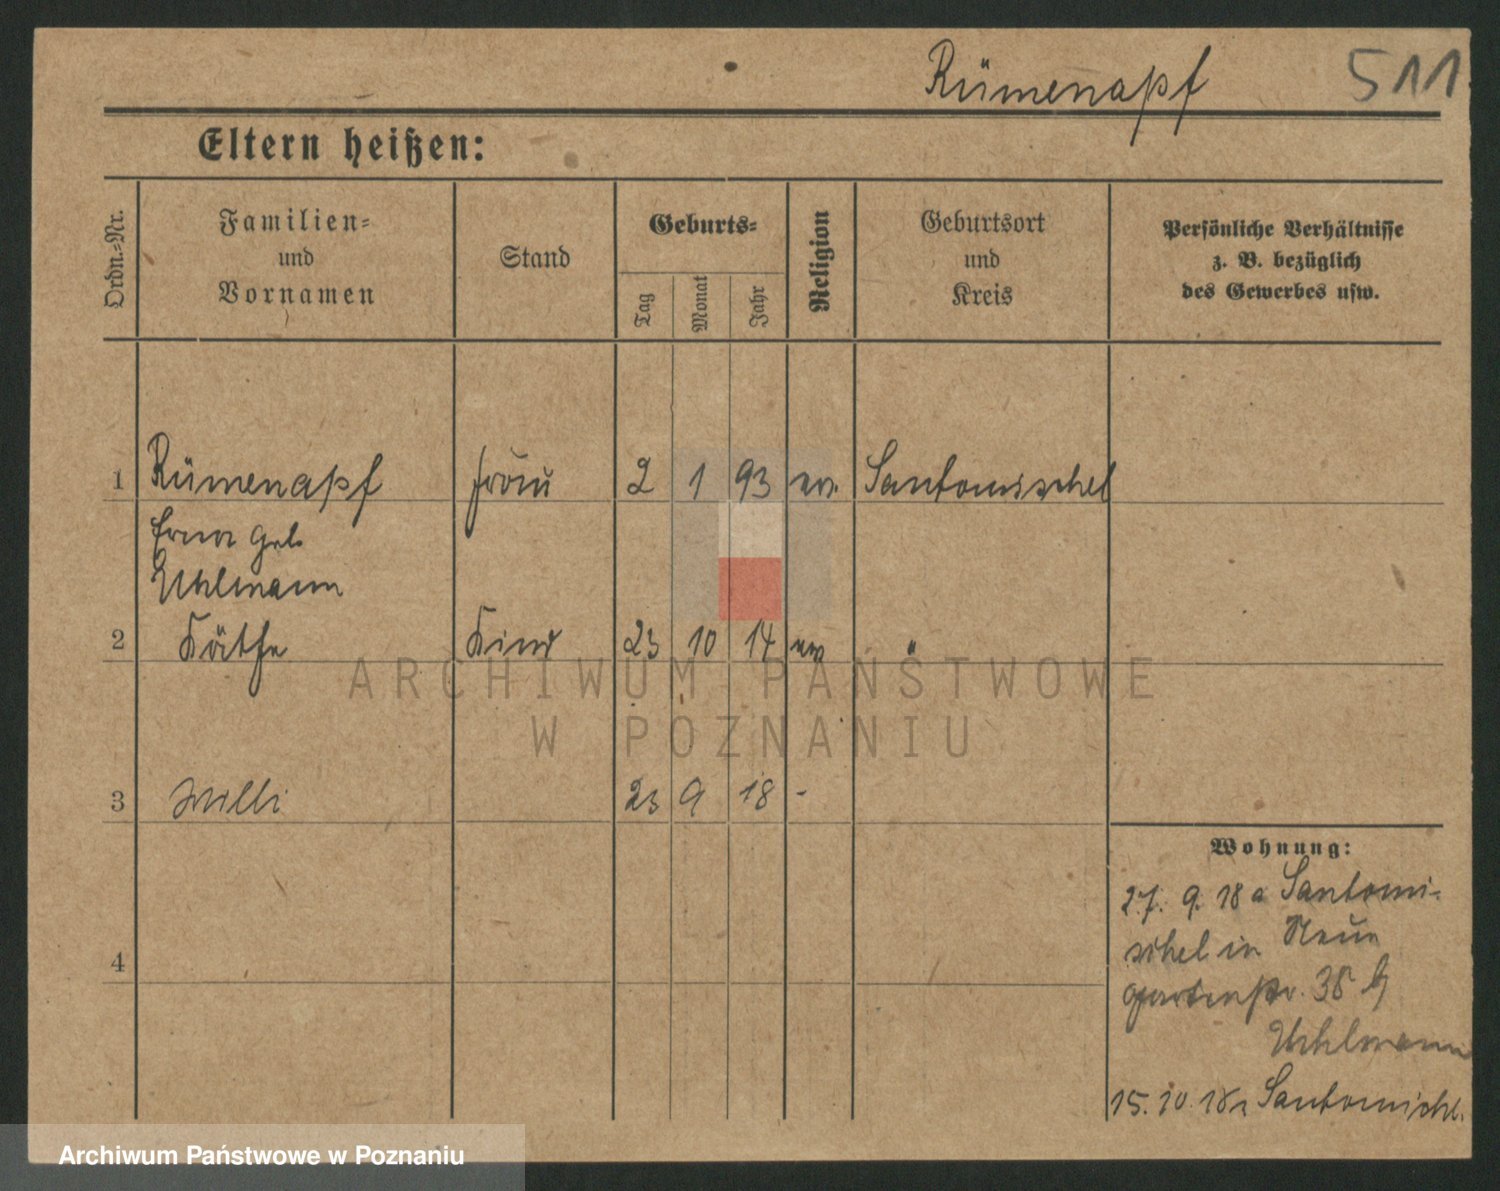 Rümenapf 511
Eltern heißen:
Ordn.-Nr.
Familien-
und
Vornamen
Stand
Geburts-
Tag
Monat
Jahr
Religion
Geburtsort
und
Kreis
Persönliche Verhältnisse
z. B. bezüglich
des Gewerbes usw.
1 Rümenapf Frau 2 1 93 ev. Santomischel
Erna geb
Uhlmann
2 Käthe Kind 23 10 14 ev "
3 Willi 23 9 18 -
Wohnung:
27. 9. 18 a Santomi-
schel in Neue
Gartenstr. 38 b/
Uhlmann
15. 10. 18 n Santomischl.
4
ARCHIWUM PAŃSTWOWE
W POZNANIU
Archiwum Państwowe w Poznaniu